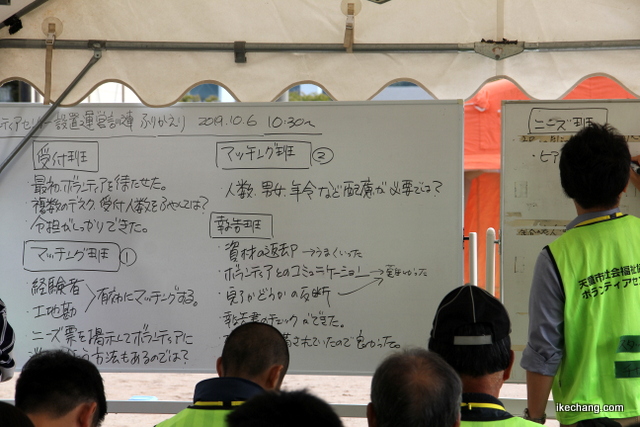 設置運営訓練 ふりかえり 2019.10.6 10:30〜
受付班
・最初ボランティアを待たせた。
・複数のデスク、受付人数をふやしては？
・分担がしっかりできた。
マッチング班 ①
・経験者
・土地勘
有効にマッチングする。
・ニーズ票を掲示してボランティアに
方法もあるのでは？
マッチング班 ②
・人数、男女、年令など配慮が必要では？
報告班
・資材の返却 →うまくいった
・ボランティアとのコミュニケーション
・完了かどうかの判断
・報告書のチェックができた。
されていたので良かった。
ニーズ班
・ヒア
天童市社会福祉
ボランティアセン
ikechang.com